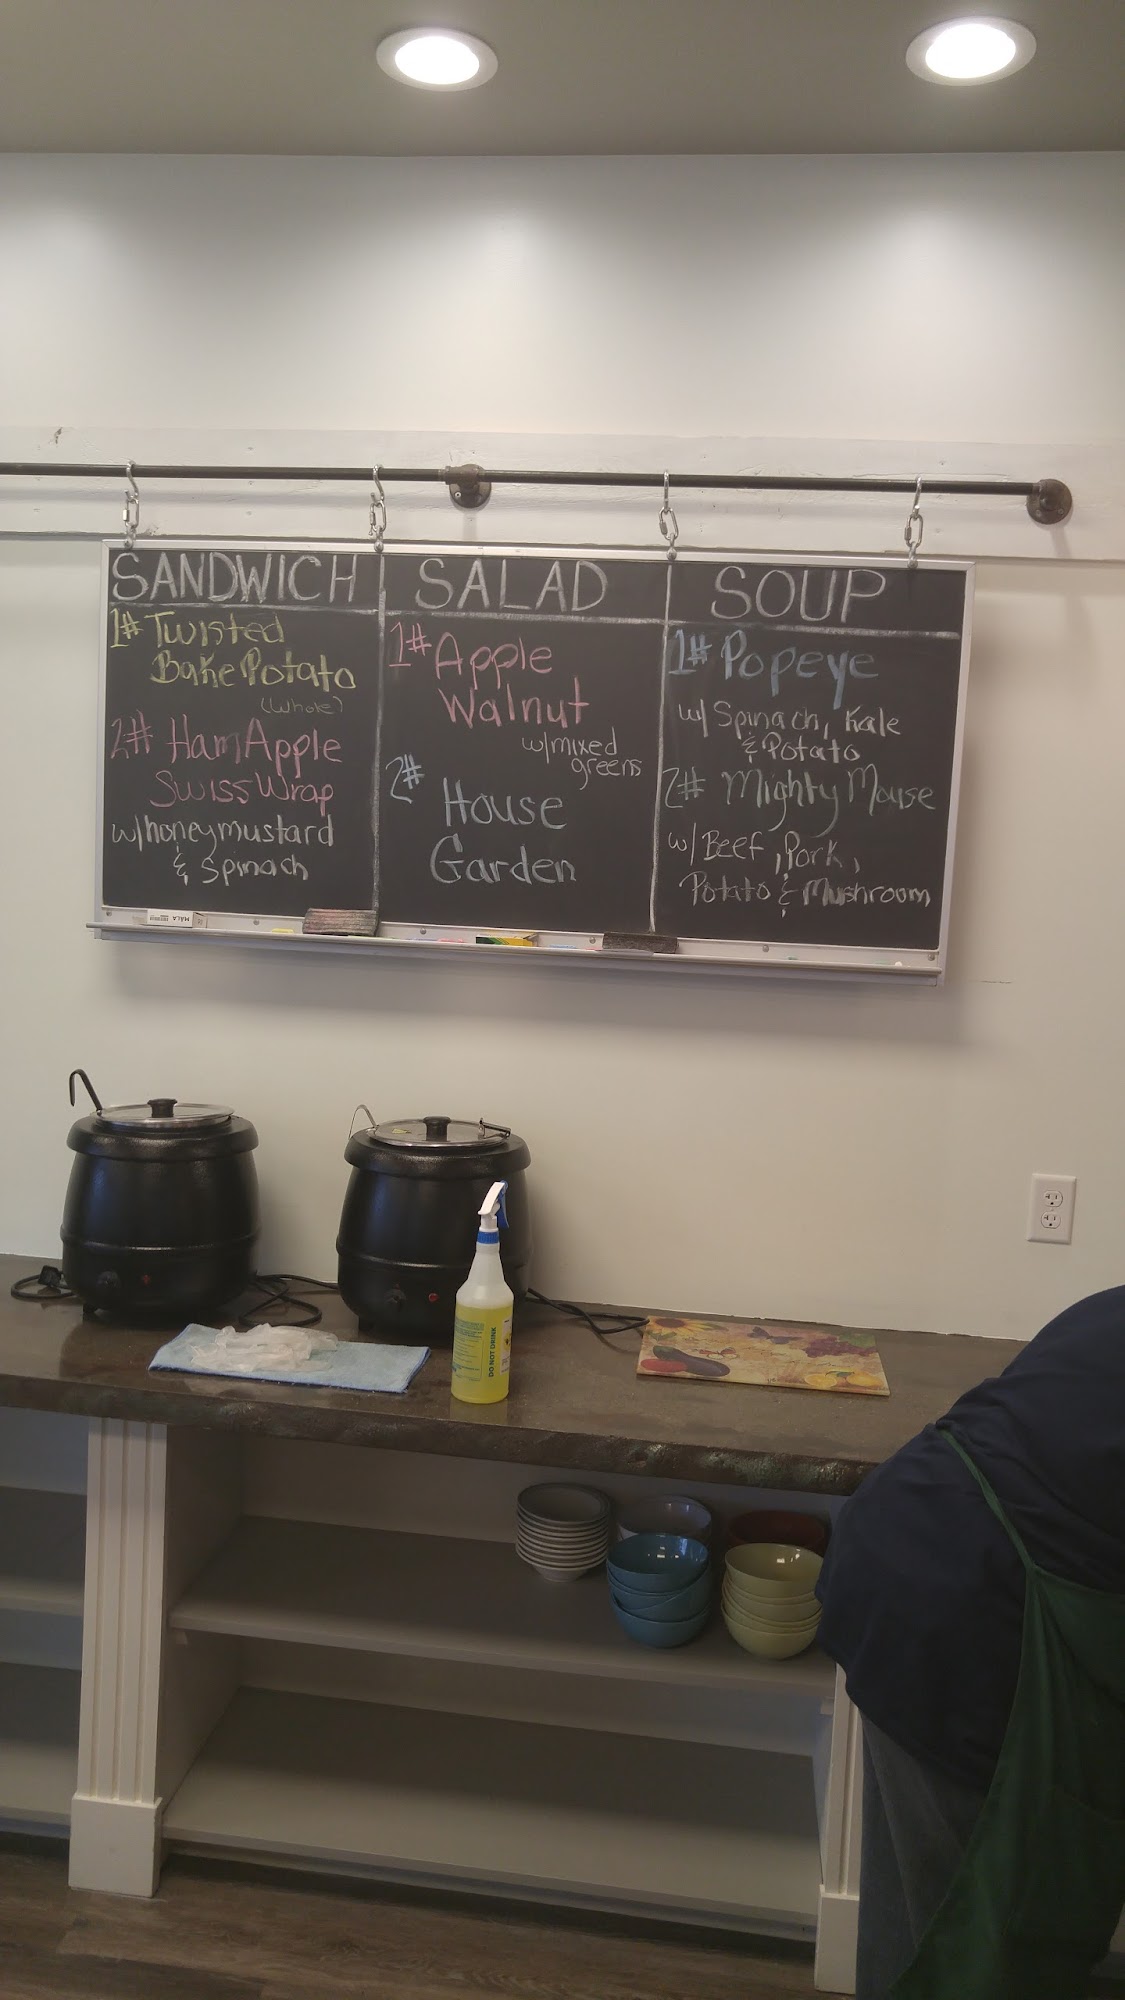 SANDWICH
1# Twisted
Bake Potato
(Whole)
2# Ham Apple
Swiss Wrap
w/honeymustard
& Spinach
SALAD
1# Apple
Walnut
w/mixed
greens
2#
House
Garden
SOUP
1# Popeye
w/ Spinach, Kale
& Potato
2# Mighty Mouse
w/ Beef, Pork,
Potato & Mushroom
MÅLA
DO NOT DRINK